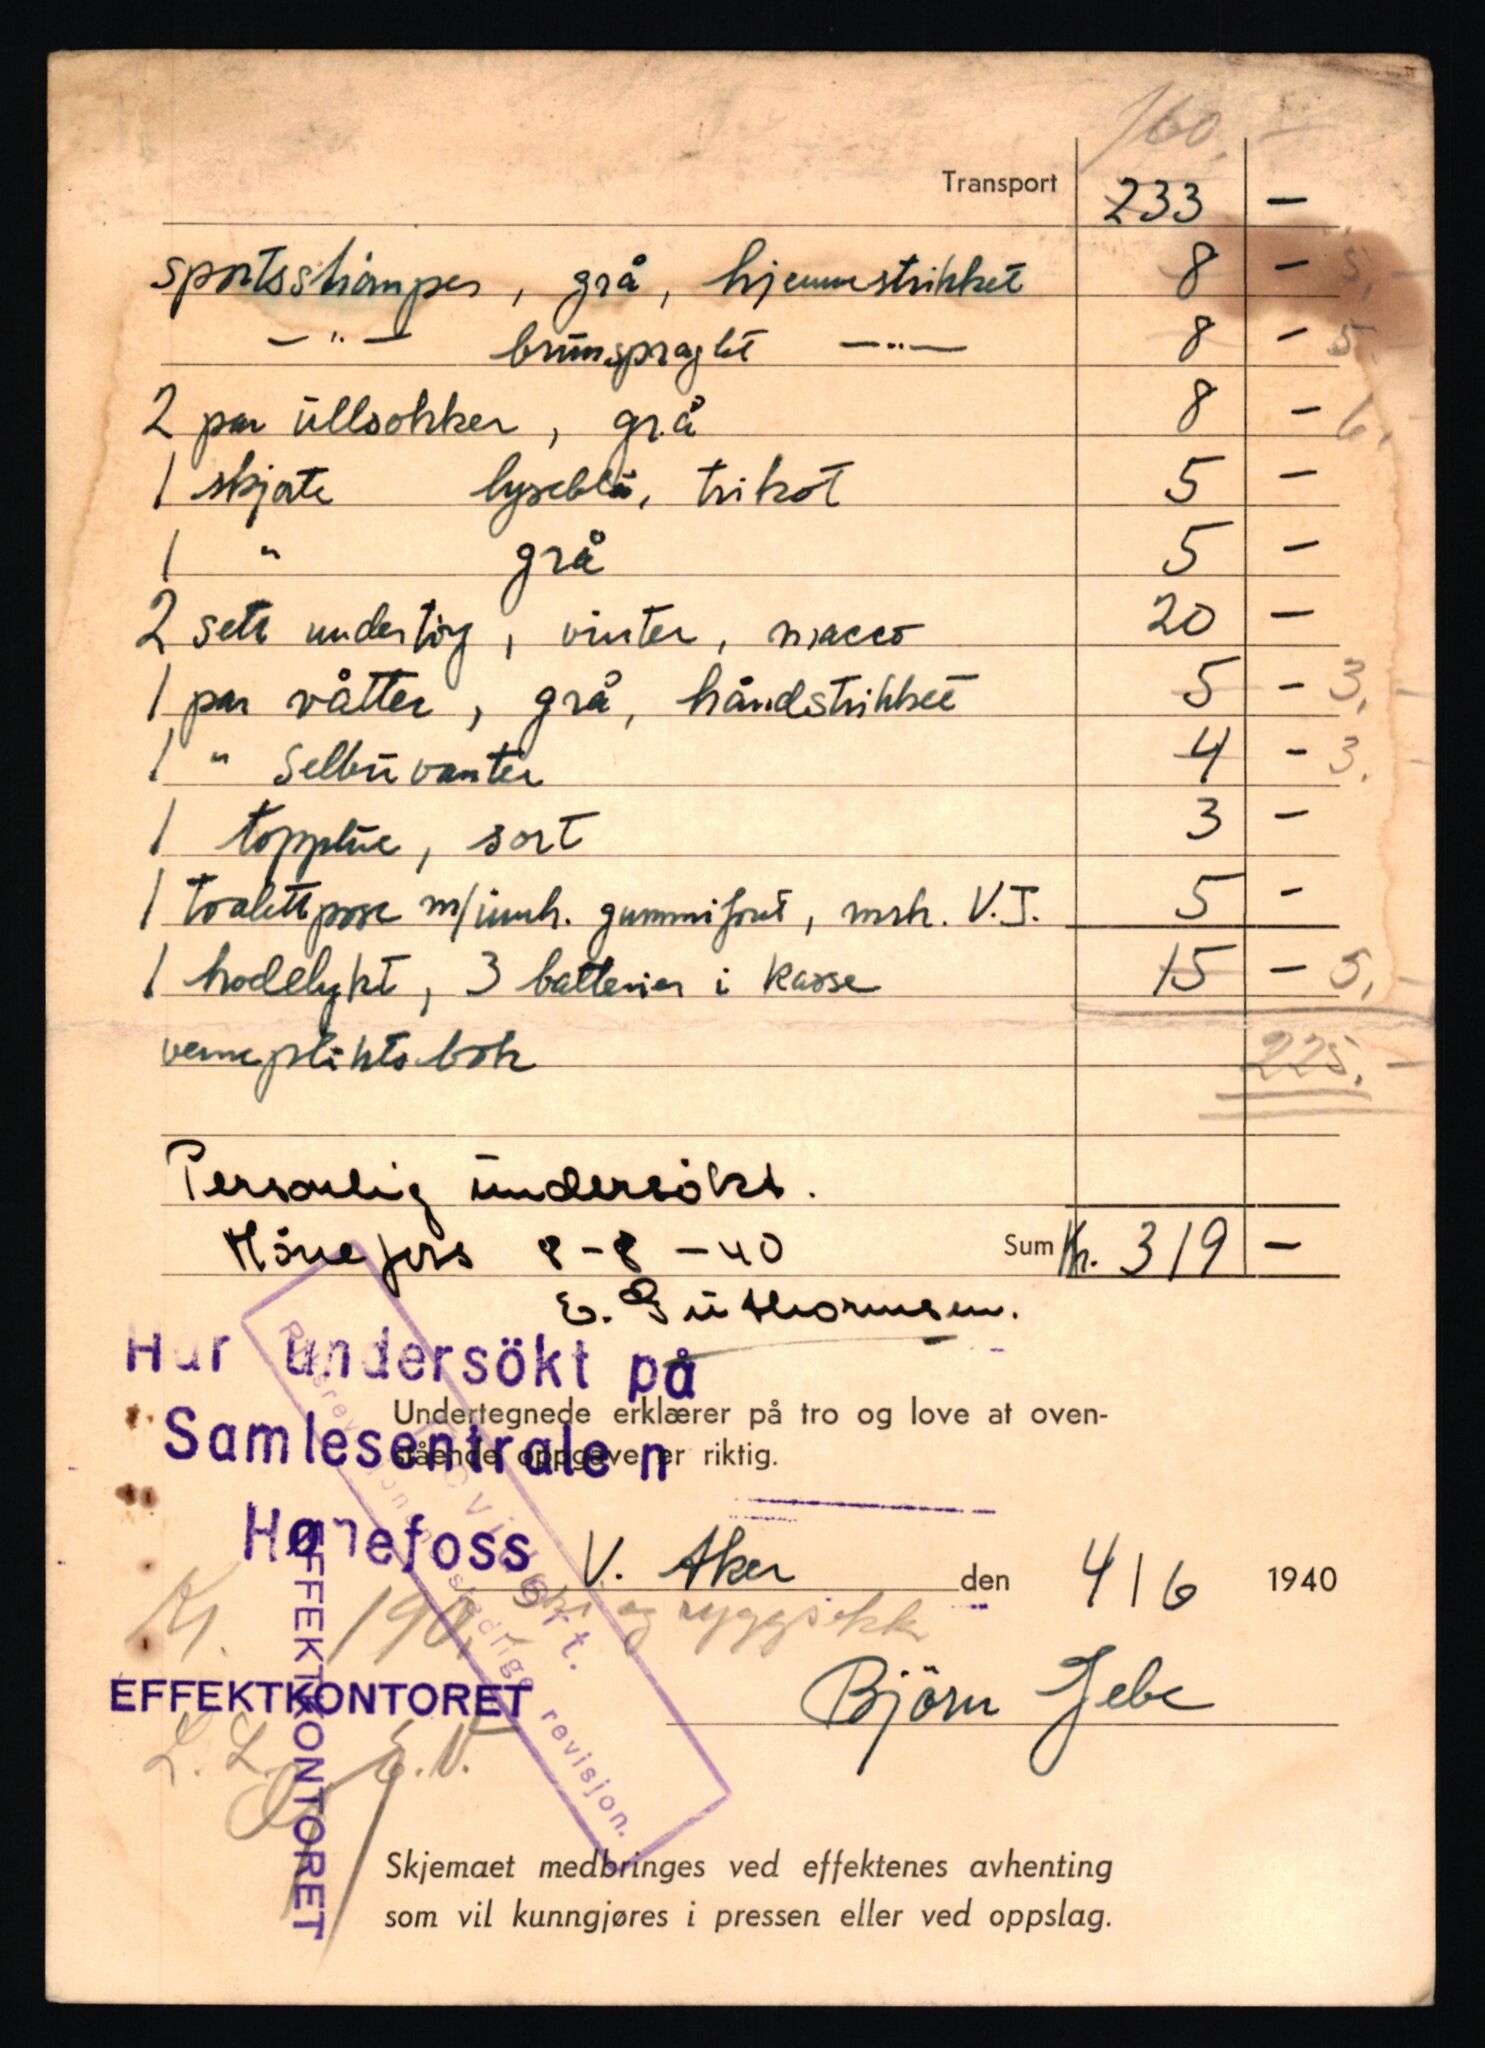 160,-
Transport 233 -
sportsströmper, grå, hjemmestrikket 8 - 5,-
-"- brunspraglet -"- 8 - 5.-
2 par ullsokker, grå 8 - 6,-
1 skjorte lyseblå, trikot 5 -
1 " grå 5 -
2 sett undertöy, vinter, macco 20 -
1 par våtter, grå, håndstrikket 5 - 3,-
1 " Selbuvanter 4 - 3.-
1 topplue, sort 3 -
1 toalettpose m/innh. gummiforet, mrk. V.J. 5 -
1 hodelykt, 3 batterier i kasse 15 - 5,-
vernepliktsbok 225.-
Personlig undersökt.
Hönefoss 8-8-40 Sum Kr. 319 -
E. Guthormsen.
Har undersökt på
Samlesentralen
Hønefoss
Undertegnede erklærer på tro og love at oven-
stående oppgave er riktig.
V. Aker den 4/6 1940
Kr. 190,- ski og ryggsekk
Björn Jebe
EFFEKTKONTORET
EFFEKTKONTORET
L.L. E.N.
Revidert.
Riksrevisjonen stedlige revisjon.
Skjemaet medbringes ved effektenes avhenting
som vil kunngjøres i pressen eller ved oppslag.